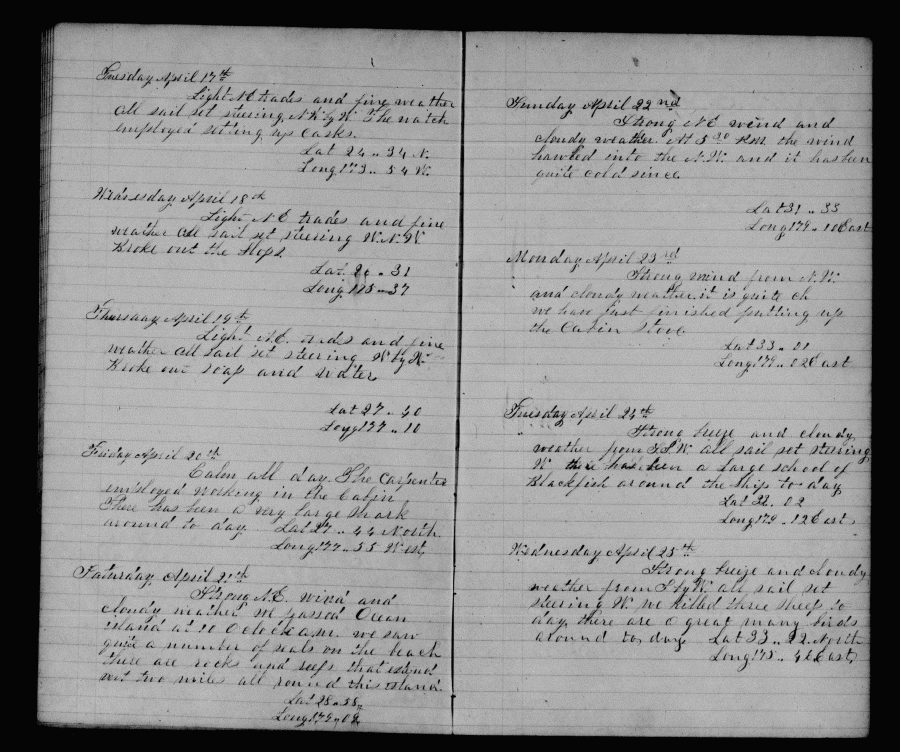 Tuesday April 17th
Light N.E. trades and fine weather
all sail set steering N.W. by W. The watch
employed setting up Casks.
Lat 24 .. 34 N.
Long 173 .. 54 W.
Wednesday April 18th
Light N.E. trades and fine
weather all sail set steering W.N.W.
Broke out the slops.
Lat. 26 .. 31
Long 175 .. 37
Thursday April 19th
Light N.E. trades and fine
weather all sail set steering by
Broke out soap and water
Lat 27 .. 40
Long 177 .. 10
Friday April 20th
Calm all day. The Carpenter
employed working in the Cabin
There has been a very large shark
around to day. Lat 27 .. 44 North
Long 177 .. 55 West,
Saturday, April 21st
Strong N.E. wind and
cloudy weather we passed Ocean
island at 10 Oclock a.m. we saw
quite a number of seals on the beach
there are rocks and reefs that extend
out two miles all round this island.
Lat 28 .. 38
Long 179 .. 02
Sunday April 22nd
Strong N.E wind and
cloudy weather. At 5 30 P.M. the wind
hawled into the N.W. and it has been
quite cold since
Lat 31 .. 33
Long 179 .. 10 East
Monday April 23rd
Strong wind from N.W.
and cloudy weather. it is quite
we have just finished putting up
the Cabin Stove
Lat 33 .. 01
Long 179 .. 02 East
Tuesday April 24th
Strong breeze and cloudy
weather from S.S.W. all sail set steering
W. there has been a large school of
Blackfish around the ship to day
Lat 32 .. 02
Long 179 .. 12 East,
Wednesday April 25th
Strong breeze and cloudy
weather from S by W. all sail set
steering W. we killed three sheep to
day, there are a great many birds
around to, day Lat 33 .. 22 North
Long 175 .. 46 East,